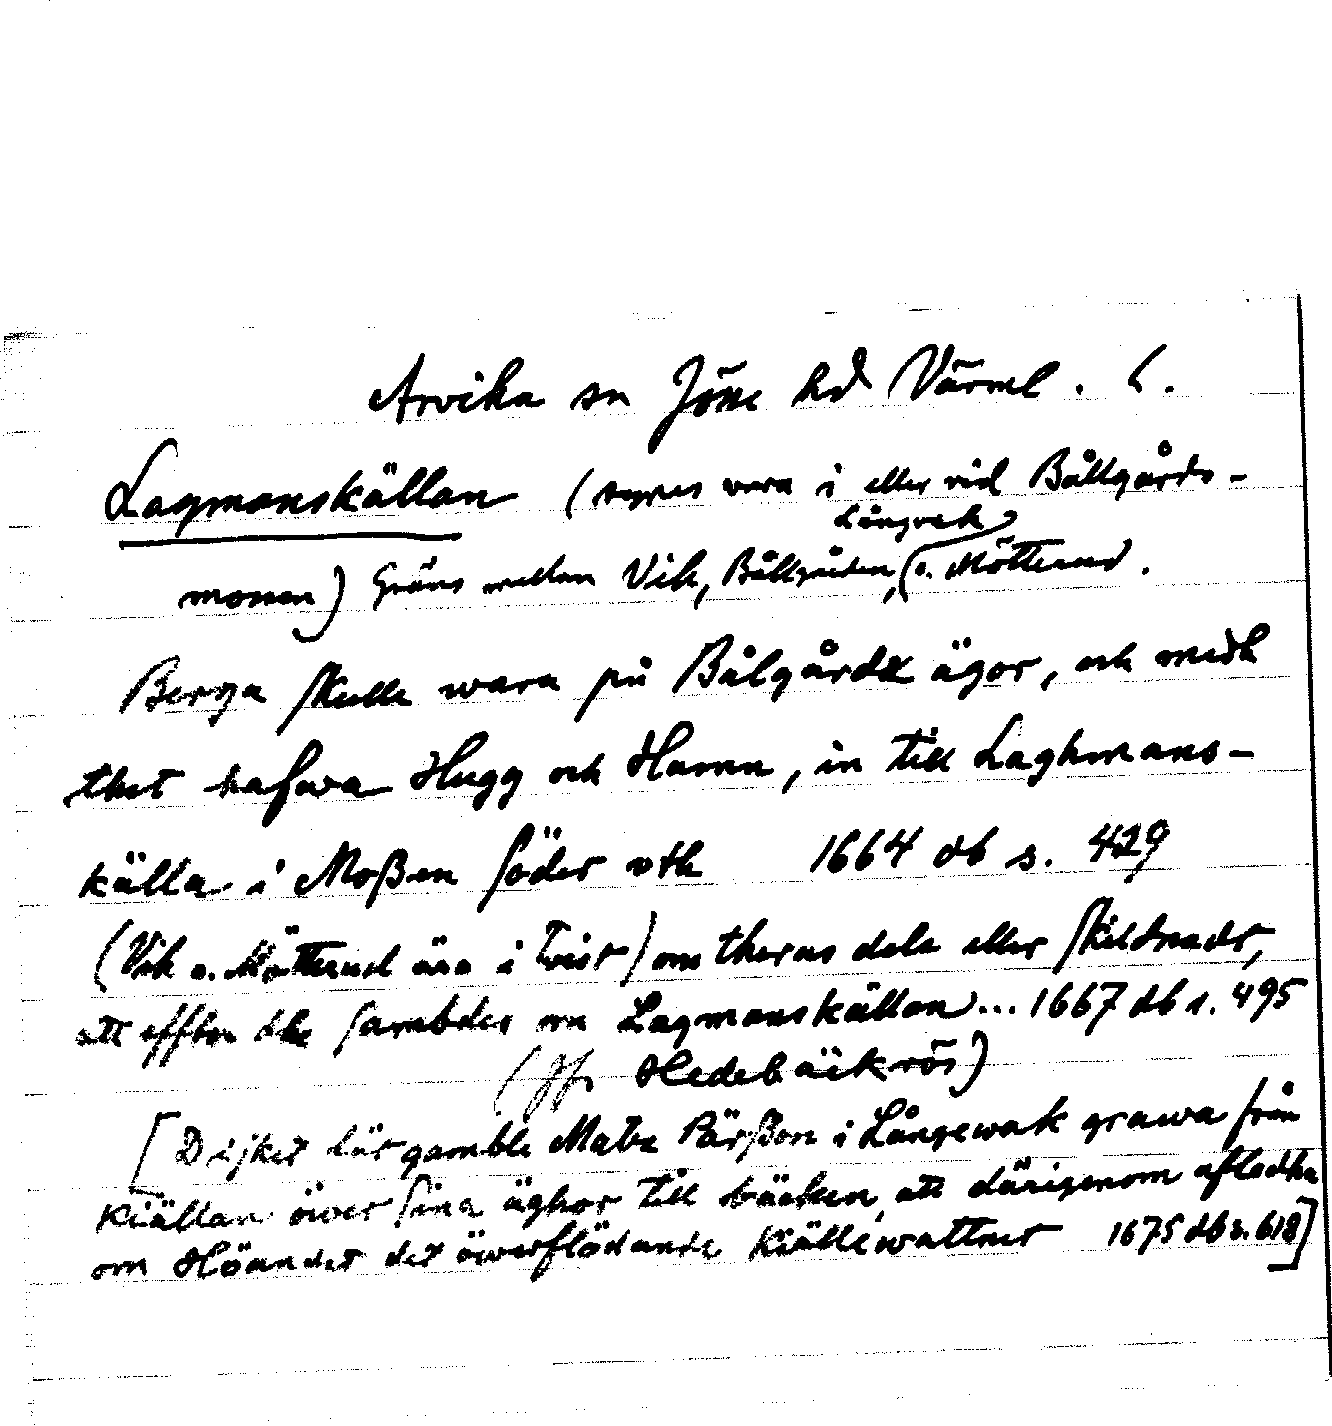 Arvika sn Jösse hd Värml. l.
Lagmanskällan (synes vara i eller vid Bållgårds-
Långvak
mossen) Gräns mellan Vik, Bållgården, (o. Mötterud.
Berga skulle wara på Bålgårdz ägor, och medh
thet hafwa Hugg och Hamn, in till Laghmans-
källa i Moßen söder uth 1664 db s. 429
(Vik o. Mötterud äro i tvist) om theras dele eller skildnadt,
att effter the sambdes om Lagmanskällan... 1667 db s. 495
(Jfr Hedebäckrös)
[Dijket lät gamble Matz Pärßon i Långewak grawa från
Kiällan öwer sina äghor till bäcken, att därigenom afledha
om Höandet det öwerflödande Kiällewattnet 1675 db s. 618]